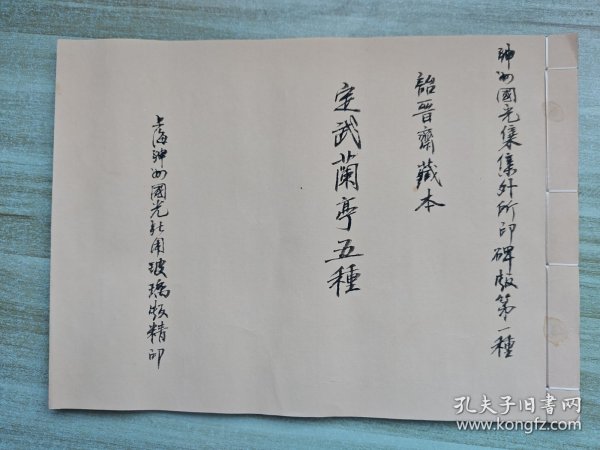 神州國光集集外所印碑版第一種
詒晉齋藏本
定武蘭亭五種
上海神州國光社用玻璃版精印
孔夫子旧书网
www.kongfz.com